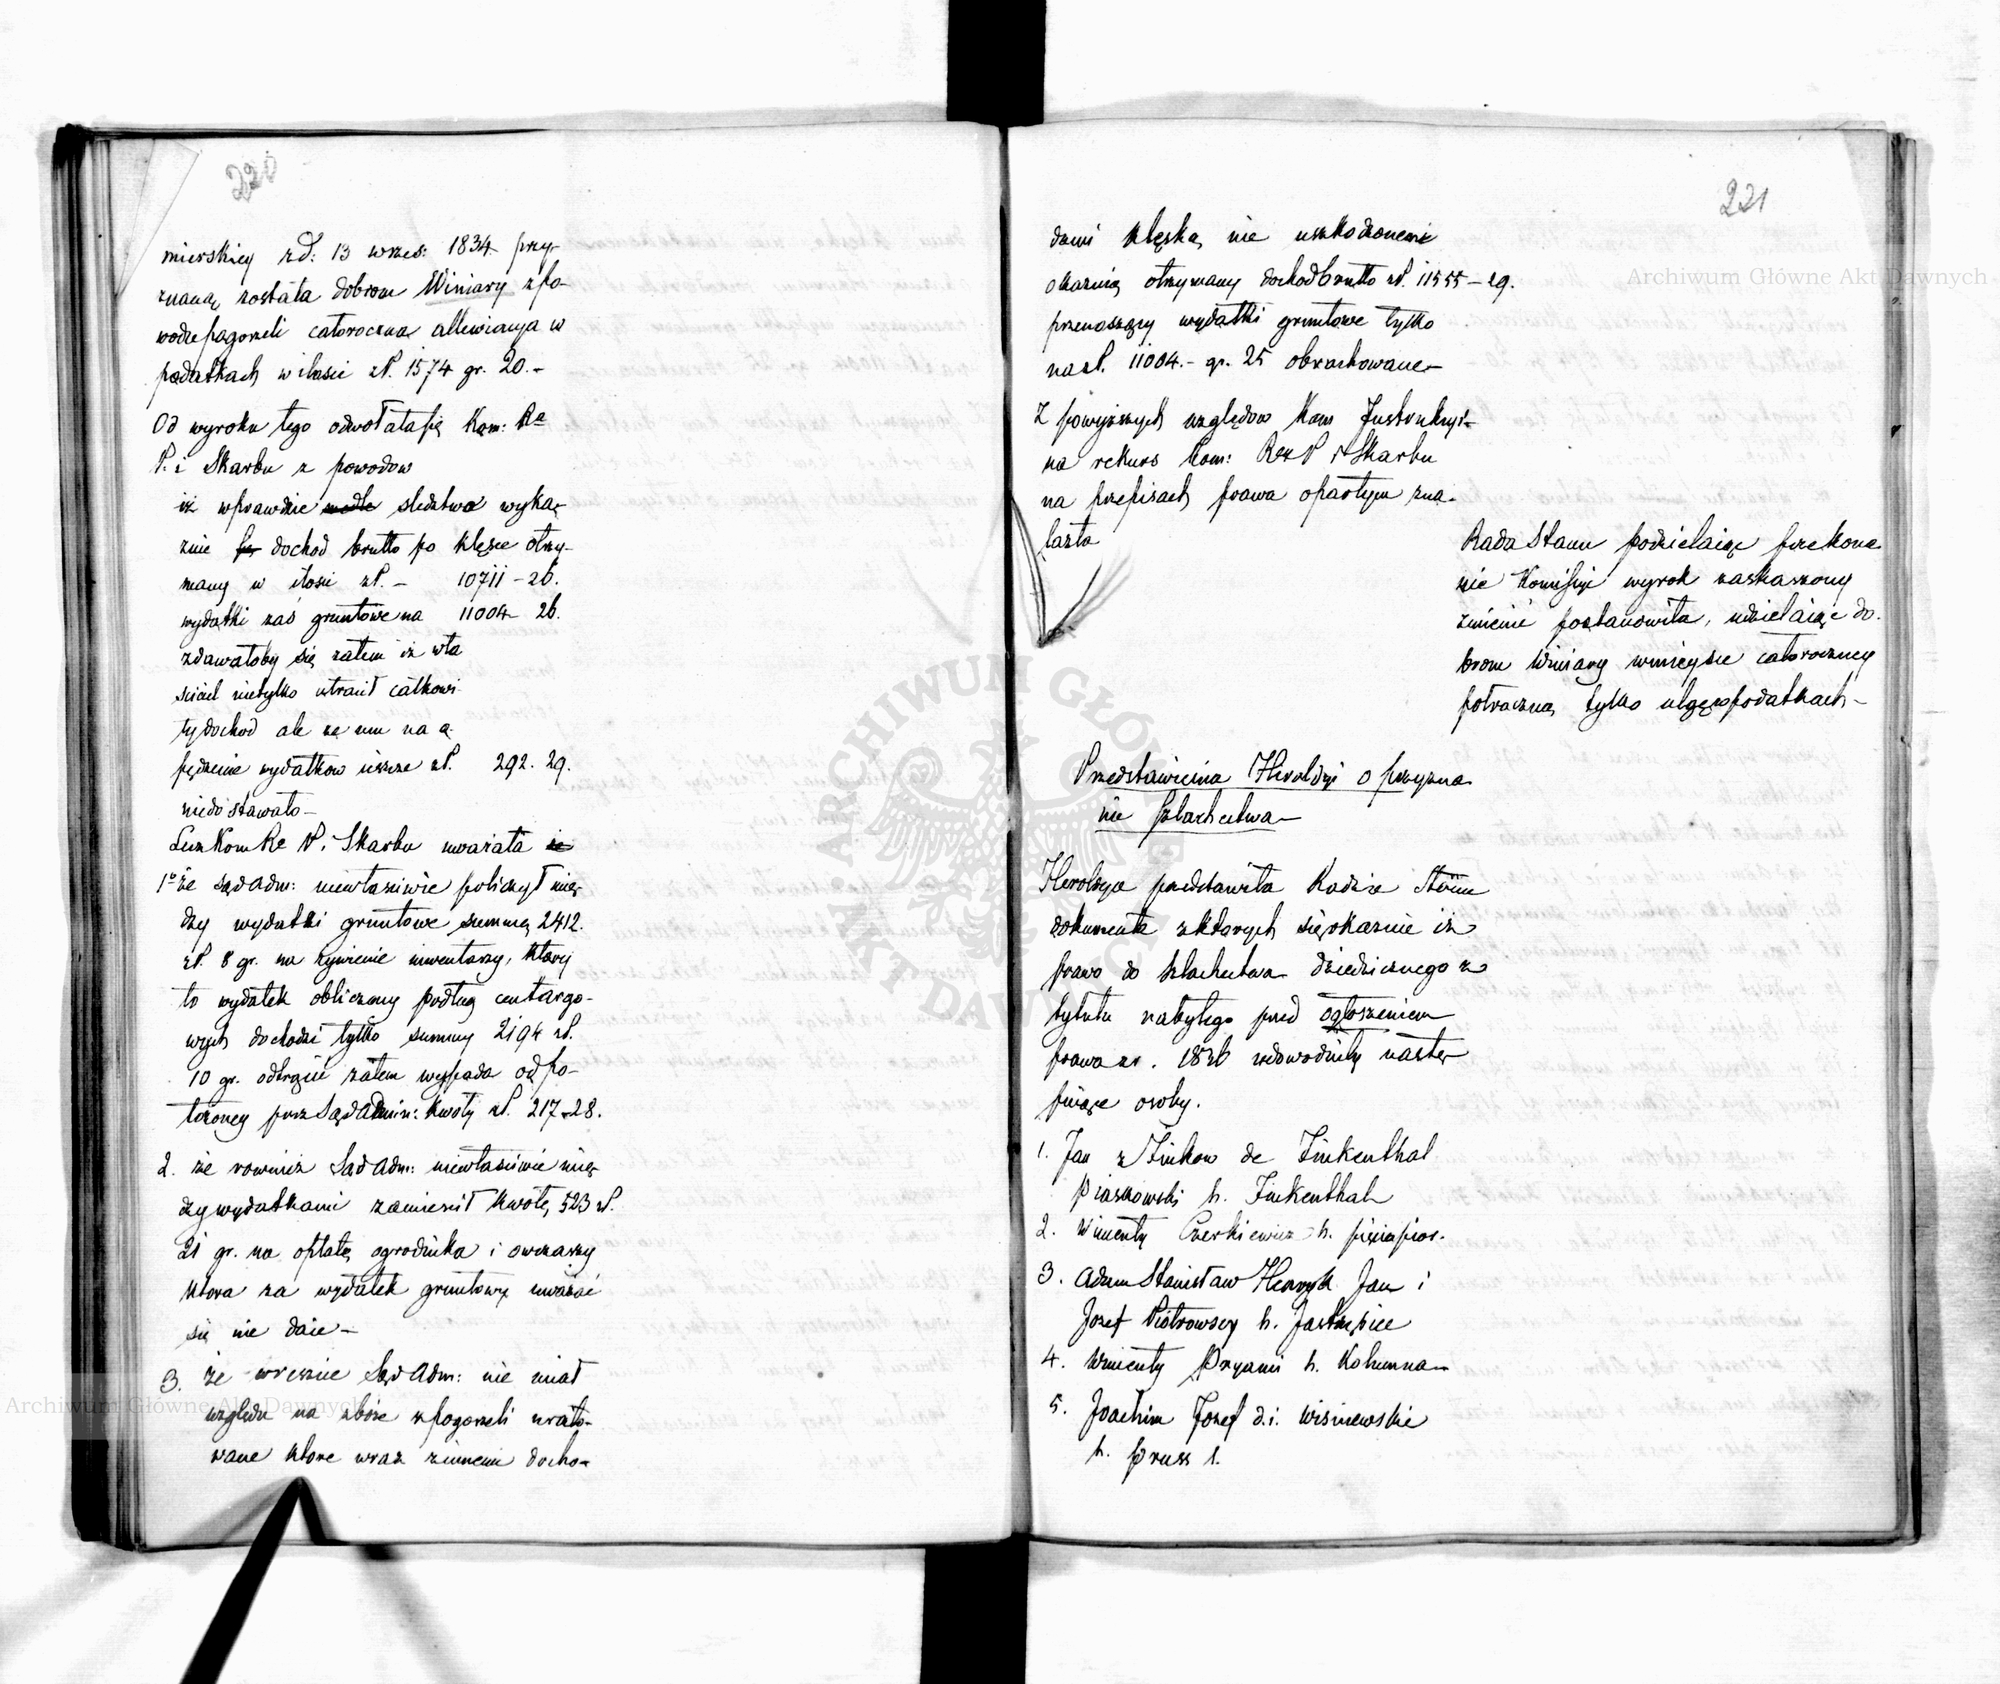 220
mierskiey z d: 13 wrzes: 1834 przy-
znaną została dobrom Winiary z po-
wodu pogorzeli całoroczna allewiacya w
podatkach w ilości zł. 1574 gr. 20.-
Od wyroku tego odwołała się Kom: Rz
P. i Skarbu z powodow
iż wprawdzie wedle sledztwa wyka-
znie dochod brutto po klęsce otrzy-
many w ilosci zł. - 10711 - 26.
wydatki zaś gruntowe na 11004 26.
zdawałoby się zatem iż wła
sciciel nietylko utracił całkowi
ty dochod ale ze mu na o
pędzenie wydatkow ieszcze zł. 292. 29.
niedostawało -
Lecz Kom Rz P. i Skarbu uważała że
1° że Sąd Adm: niewłasciwie policzył mię-
dzy wydatki gruntowe summę 2412.
zł. 8 gr. na żywienie inwentarzy, ktory
to wydatek obliczony podług cen targo-
wych dochodzi tylko summy 2194 zł.
10 gr. odtrącić zatem wypada od po-
łożoney przez Sąd Admin: kwoty zł. 217-28.
2. że rownież Sąd Adm: niewłasciwie mię-
dzy wydatkami zamiescił kwotę 523 zł.
21 gr. na opłatę ogrodnika i owczarzy
ktora za wydatek gruntowy uważać
się nie daie -
3. że wreszcie Sąd Adm: nie miał
względu na zboże z pogorzeli urato-
wane ktore wraz z innemi docho-
221
dami klęską nie uszkodzonemi
okazuią otrzymany dochod brutto zł. 11555 - 29.
przenoszący wydatki gruntowe tylko
na zł. 11004.- gr. 25 obrachowane -
Z powyższych względow Kom Instrukcyi-
na rekurs Kom: Rz P i Skarbu
na przepisach prawa opartym zna-
lazła
Rada Stanu podzielaiąc przekona
nie Komissyi wyrok zaskarzony
zmienić postanowiła, udzielaiąc do-
brom Winiary wmieysce całoroczney
połroczną tylko ulgę w podatkach -
Przedstawienia Heroldyi o przyzna
nie szlachectwa -
Heroldya przedstawiła Radzie Stanu
dokumenta z ktorych się okazuie iż
prawo do szlachectwa dziedzicznego z
tytułu nabytego przed ogłoszeniem
prawa z r. 1836 udowodniły nastę-
puiące osoby.
1. Jan z Finkow de Finkenthal
Piaskowski h. Finkenthal
2. Wincenty Czerkiewicz h. pięciopior.
3. Adam Stanisław Henryk Jan i
Jozef Piotrowscy h. Jastrzębiec
4. Wincenty Pryami h. Kolumna -
5. Joachim Jozef d.i. Wisniewskie
h. Pruss 1.
Archiwum Główne Akt Dawnych
Archiwum Główne Akt Dawnych
ARCHIWUM GŁÓWNE AKT DAWNYCH